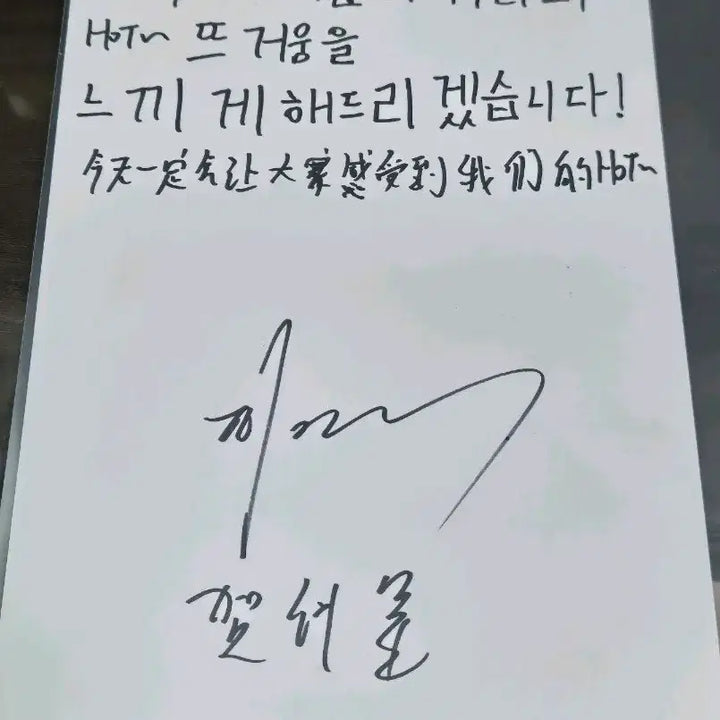 HoTn 뜨거움을
느끼게 해드리겠습니다!
今天一定会让大家感受到我们的HoTn